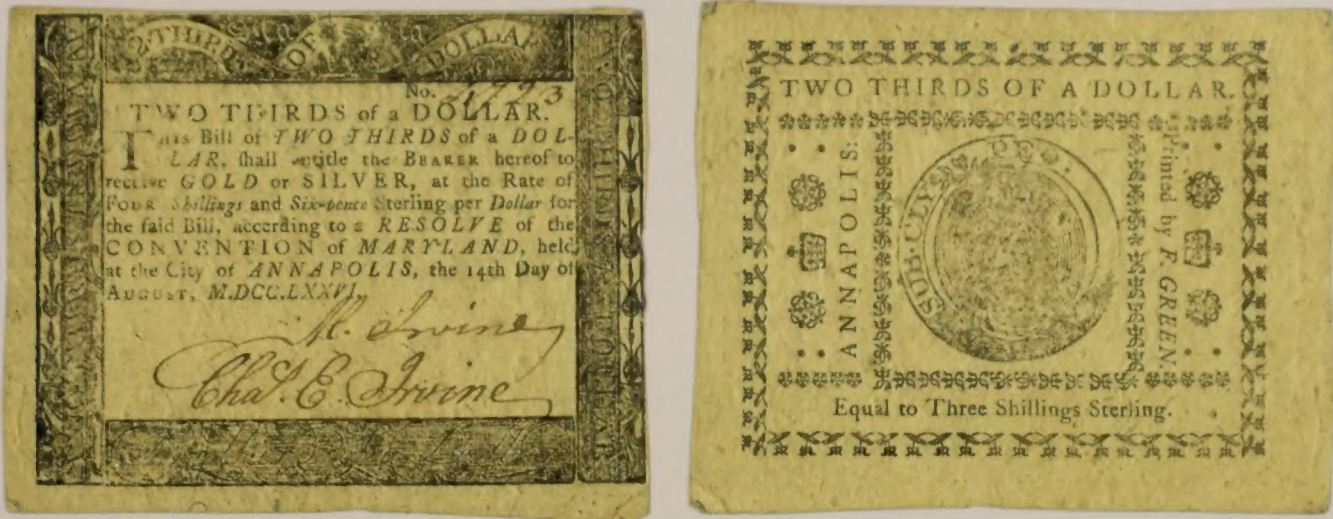 THIRDS OF A DOLLAR
No.
TWO THIRDS of a DOLLAR.
This Bill of TWO THIRDS of a DOL-
LAR, ſhall entitle the BEARER hereof to
receive GOLD or SILVER, at the Rate of
FOUR Shillings and Six-pence Sterling per Dollar for
the ſaid Bill, according to a RESOLVE of the
CONVENTION of MARYLAND, held
at the City of ANNAPOLIS, the 14th Day of
AUGUST, M.DCC.LXXVI.
M. Irvine
Chas. E. Irvine
TWO THIRDS OF A DOLLAR.
ANNAPOLIS:
SUB·CLYP
Printed by F. GREEN.
Equal to Three Shillings Sterling.